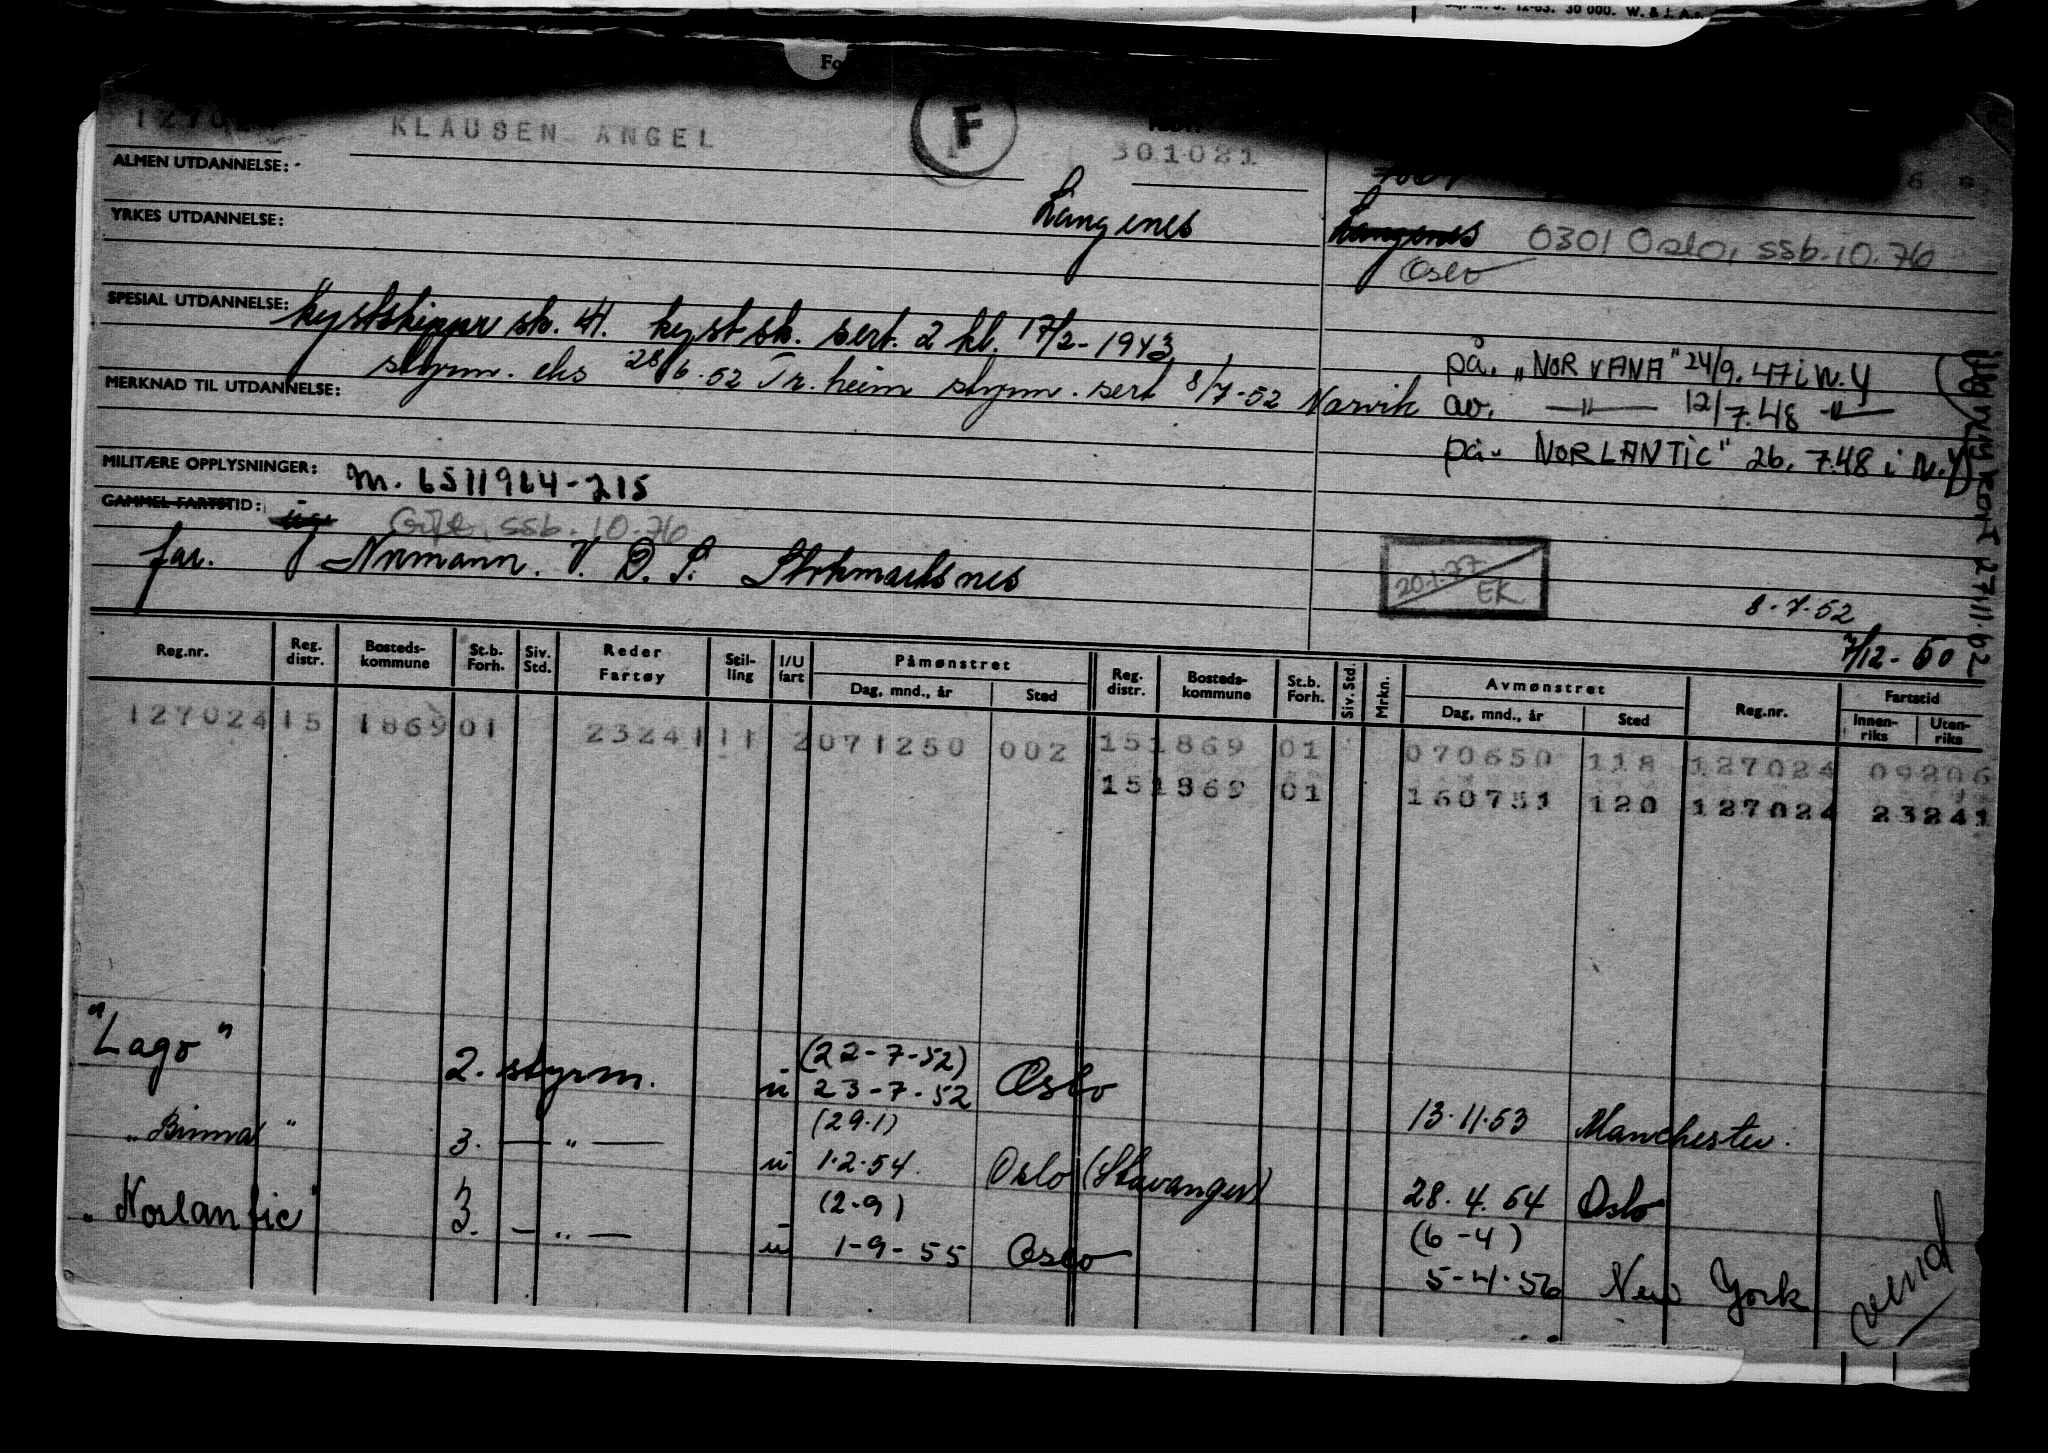 12-63. 30 000. W. & J. A.s.
Fo
12702
KLAUSEN ANGEL
F
FØDT
301021
ALMEN UTDANNELSE:
YRKES UTDANNELSE:
Langenes
Langenes 0301 Oslo, ssb.10.76
Oslo
SPESIAL UTDANNELSE: kystskipper sk. 41. kystsk. sert. 2 kl. 17/2-1943
styrm. eks 28/6.52 Tr.heim styrm. sert 8/7-52 Narvik
på. „NORVANA" 24/9.47 i N.Y
av. —"— 12/7.48 —"—
på. NORLANTIC" 26.7.48 i N.Y
MERKNAD TIL UTDANNELSE:
MILITÆRE OPPLYSNINGER: M. 6511964-215
GAMMEL FARTSTID: ug. Gift, ssb.10.76
far. Normann. V. D. S. Stokmarksnes
20.1.77
EK
Ny rkort 27/11.62
8-7-52
7/12-50
Reg.nr.
Reg. distr.
Bosteds-kommune
St.b. Forh.
Siv. Std.
Reder Fartøy
Stil-ling
I/U fart
Påmønstret
Dag, mnd., år
Sted
Reg. distr.
Bosteds-kommune
St.b. Forh.
Siv. Std.
Mrkn.
Avmønstret
Dag, mnd., år
Sted
Reg.nr.
Fartstid
Innen-riks
Uten-riks
127024 15 1869 01 23241 11 2 071250 002 15 1869 01 070650 118 127024 09206
15 1869 01 160751 120 127024 23241
"Lago" 2. styrm. u (22-7-52) 23-7-52 Oslo 13.11.53 Manchester.
„Binna" 3. —"— u (29.1) 1.2.54. Oslo (Stavanger) 28.4.54 Oslo
„Norlantic" 3. —"— u (2.9) 1-9-55 Oslo (6-4) 5-4-56 New York
vend